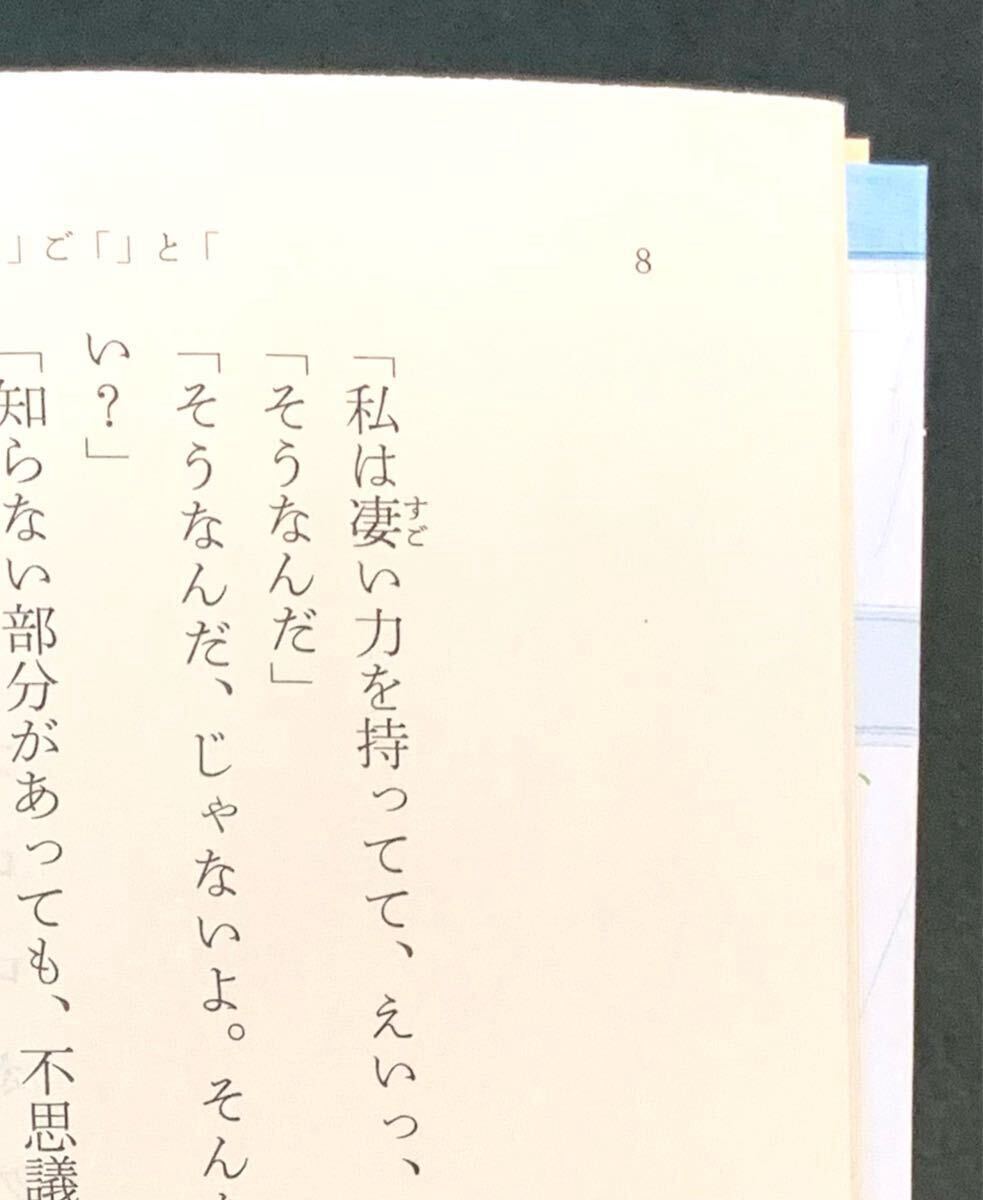 8
」ご「」と「
「私は凄い力を持ってて、えいっ、
すご
「そうなんだ」
「そうなんだ、じゃないよ。そん
い？」
「知らない部分があっても、不思議